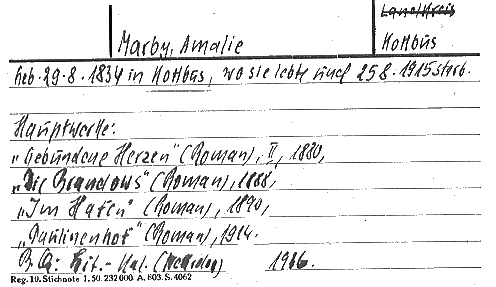 Landkreis
Marby, Amalie
Kottbus
Geb. 29.8.1834 in Kottbus, wo sie lebte und 25.8.1915 starb.
Hauptwerke:
„Gebundene Herzen" (Roman), II, 1880,
„Die Brandows" (Roman), 1888,
„Im Hafen" (Roman), 1890,
„Paulinenhof" (Roman), 1914.
Lit.-Kal. 1906.
Reg. 10. Stichnote 1. 50. 232000. A. 803. S. 4062